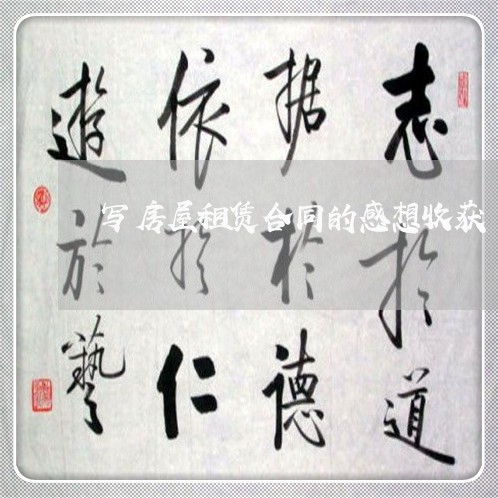 志於道
据於德
依於仁
遊於藝
写房屋租赁合同的感想收获